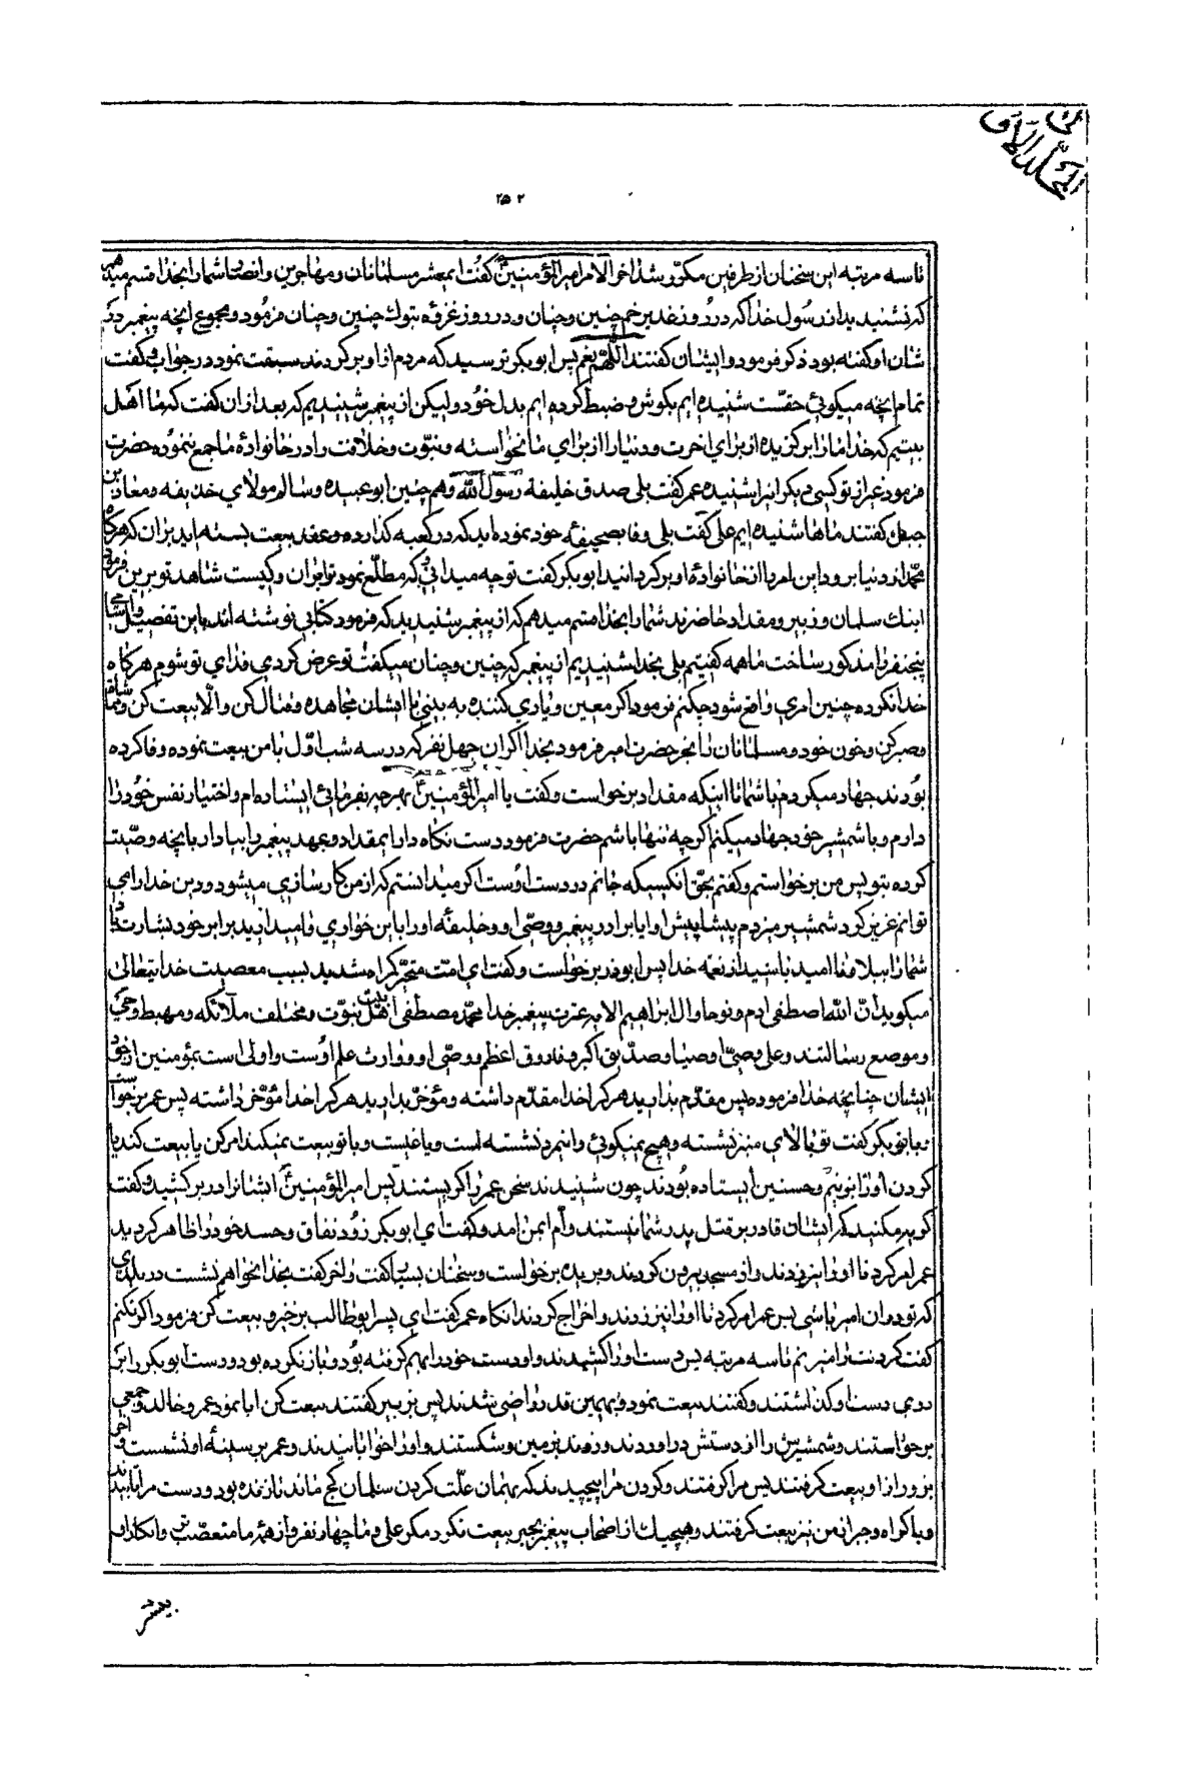 المجلد الاول
۲۵۲
تاسه مرتبه این سخنان از طرفین مکرّر شد اخر الامر امیر المؤمنین گفت ایمعشر مسلمانان و مهاجرین و انصار شما را بخدا قسم میدهم
که نشنیدید از رسول خدا که در روز غدیر خم چنین و چنان و در روز غزوه تبوك چنین و چنان فرمود و مجموع انچه پیغمبر در
شان او گفته بود ذکر فرمود و ایشان گفتند اللّهمّ نعم پس ابوبکر ترسید که مردم از او بر گردند سبقت نمود در جواب و گفت
تمام انچه میگوئی حقست شنیده ایم بگوش و ضبط کرده ایم بدل خود ولیکن از پیغمبر شنیدیم که بعد از ان گفت که ما اهل
بیتیم که خدا ما را برگزیده از برای اخرت و دنیا را از برای ما نخواسته و نبوّت و خلافت را در خانواده ما جمع ننموده حضرت
فرمود غیر از تو کسی دیگر انرا شنیده عمر گفت بلی صدق خلیفه رسول الله و هم چنین ابو عبیده و سالم مولای حذیفه و معاذ بن
جبل گفتند ماها شنیده ایم علی گفت بلی وفا بصحیفه خود نموده اید که در کعبه گذارده و عقد بیعت بسته اید بران که هرگاه
محمّد از دنیا برود این امر را از خانواده او بر گردانید ابوبکر گفت تو چه میدانی که مطلّع نمود تو را بران و کیست شاهد تو برین فرمود
اینك سلمان و زبیر و مقداد حاضرند شما را بخدا قسم میدهم که از پیغمبر شنیدید که فرمود کتابی نوشته اند باین تفصیل و اسامی
پنجنفر را مذکور ساخت ما همه گفتیم بلی بخدا شنیدیم از پیغمبر که چنین و چنان میگفت و تو عرض کردی فدای تو شوم هرگاه
خدا نکرده چنین امری واقع شود چکنم فرمود اگر معین و یاری کننده به بینی با ایشان مجاهده و قتال کن و الّا بیعت کن
و صبر کن و خون خود و مسلمانان را بخر حضرت امیر فرمود بخدا اگر ان چهل نفر که در سه شب اوّل با من بیعت نموده وفا کرده
بودند جهاد میکردم با شما تا اینکه مقداد برخواست و گفت یا امیر المؤمنین بهرچه بفرمائی ایستاده ام و اختیار نفس خود را
دارم و با شمشیر خود جهاد میکنم اگر چه تنها باشم حضرت فرمود دست نگاه دار ایمقداد و عهد پیغمبر را بیاد ار بانچه وصیّت
کرده بتو پس من برخواستم و گفتم بحقّ انکسیکه جانم در دست اوست اگر میدانستم که از من کار سازی میشود و دین خدا را می
توانم عزیز کرد شمشیر میزدم پیشاپیش او ایا برادر پیغمبر و وصّی او و خلیفه او را باین خواری وامیدارید برابر خود بشارت باد
شما را ببلا و نا امید باشید از نعمه خدا پس ابوذر برخواست و گفت ای امّت متحیّر گمراه شدید بسبب معصیت خدا تعالی
میگوید انّ الله اصطفی ادم و نوحا و ال ابراهیم الایه عترت پیغمبر خدا محمّد مصطفی اهل بیت نبوّت و مختلف ملائکه و مهبط وحی
و موضع رسالتند و علی وصیّ اوصیا و صدّیق اکبر و فاروق اعظم و وصّی او و وارث علم اوست و اولی است بمؤمنین از خود
ایشان چنانچه خدا فرموده پس مقدّم بدارید هر که را خدا مقدّم داشته و مؤخّر بدارید هر که را خدا مؤخّر داشته پس عمر برخواست
و بابوبکر گفت تو بالای منبر نشسته و هیچ نمیگوئی و انمرد نشسته است و یاغیست و با تو بیعت نمیکند امر کن یا بیعت کند یا
گردن او را بزنیم و حسنین ایستاده بودند چون شنیدند سخن عمر را گریستند پس امیر المؤمنین ایشانرا در بر کشید و گفت
گریه مکنید که ایشان قادر بر قتل پدر شما نیستند و اُم ایمن امد و گفت ای ابوبکر زود نفاق و حسد خود را ظاهر کردید
عمر امر کرد تا او را زدند و از مسجد بیرون کردند و بریده برخواست و سخنان بسیار گفت و اخر گفت بخدا نخواهم نشست در بلدی
که تو در ان امیر باشی پس عمر امر کرد تا او را نیز زدند و اخراج کردند انگاه عمر گفت ای پسر ابوطالب برخیز و بیعت کن فرمود اگر نکنم
گفت گردنت را میزنم تا سه مرتبه پس دست او را کشیدند و او دست خود را بهم گرفته بود و باز نکرده بود و دست ابوبکر را بر
روی دست او گذاشتند و گفتند بیعت نمود و بهمین قدر راضی شدند پس بزبیر گفتند بیعت کن ابا نمود عمر و خالد و جمعی
برخواستند و شمشیرش را از دستش در اوردند و زدند بزمین و شکستند و او را خوابانیدند و عمر بر سینه او نشست و اخر
بزور از او بیعت گرفتند پس مرا گرفتند و گردن مرا پیچیدند که بهمان علّت گردن سلمان کج ماند تا زنده بود و دست مرا تابیدند
و باکراه و جبر از من نیز بیعت گرفتند و هیچیك از اصحاب پیغمبر بجبر بیعت نکرد مگر علی و ما چهار نفر و از همهٔ ما متعصّب‌تر و انکار او
بیشتر